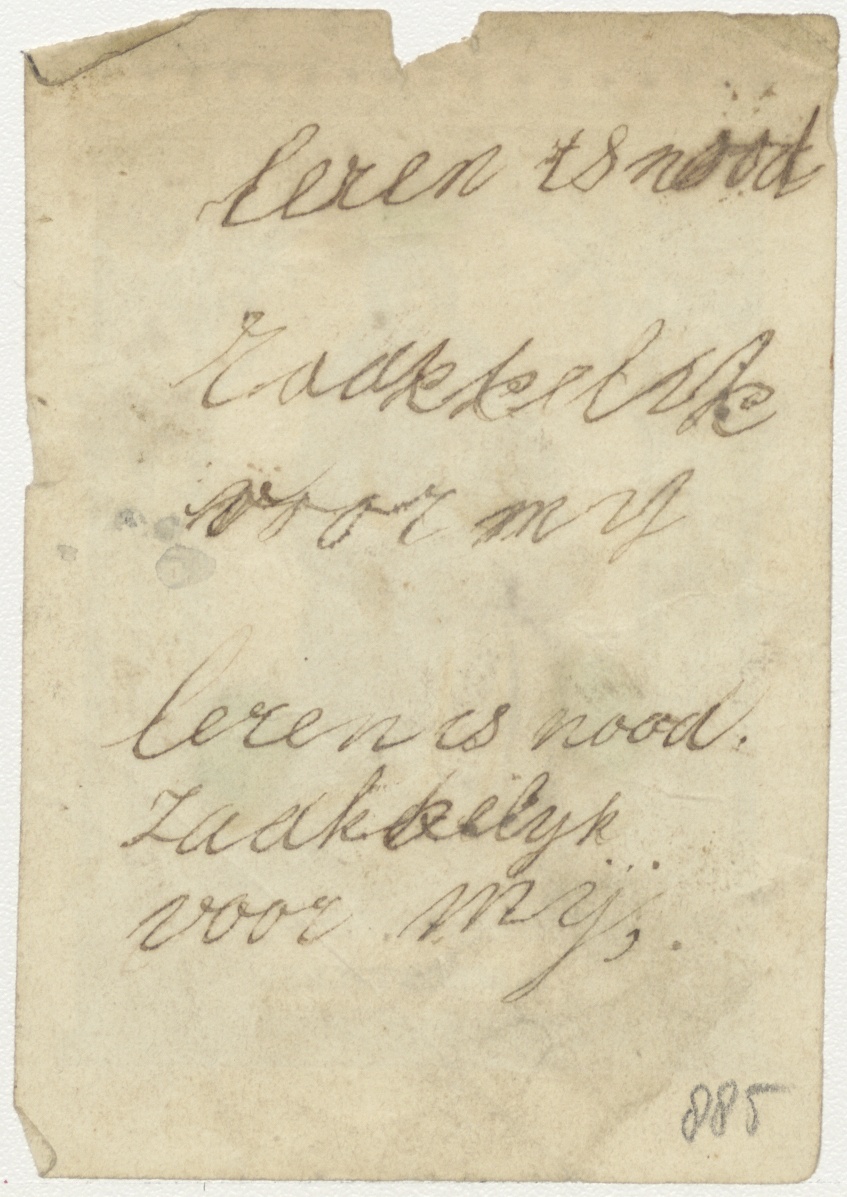 leren is nood
zaakkelijk
voor my
leren is nood.
zaakkelyk
voor mij,.
885